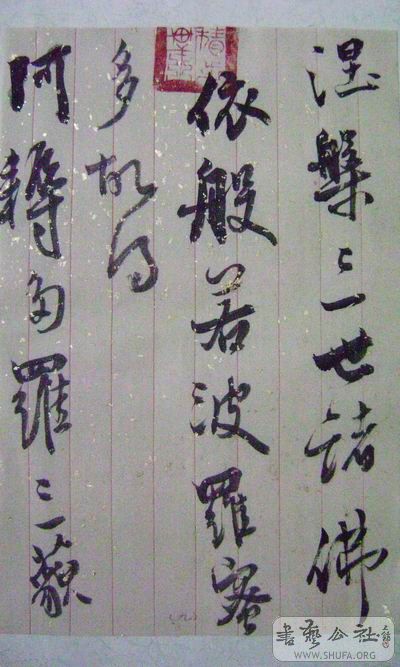 涅槃三世諸佛
依般若波羅蜜
多故得
阿耨多羅三藐
書藝公社
WWW.SHUFA.ORG